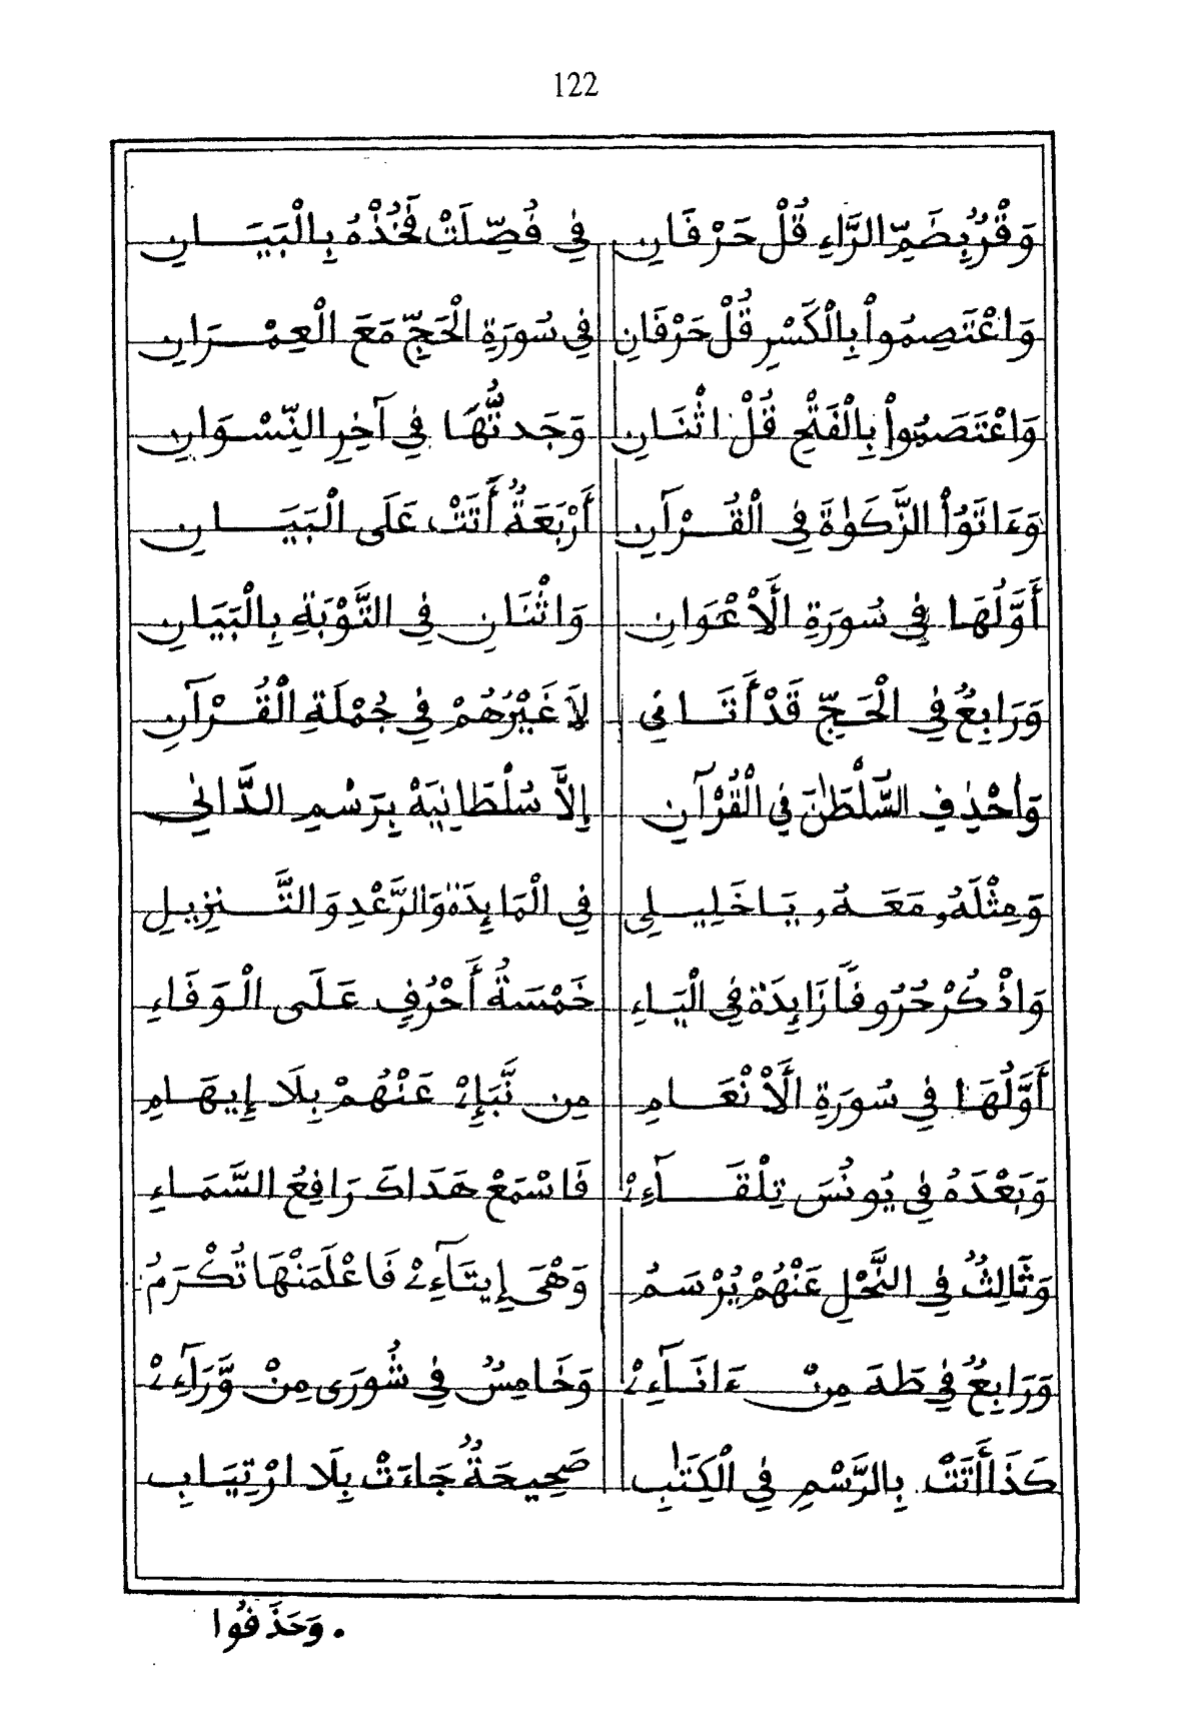 122
وَقْرٌ بِضَمِّ الرَّاءِ قُلْ حَرْفَانِ فِي فُصِّلَتْ فَخُذْهُ بِالْبَيَـانِ
وَاعْتَصِمُواْ بِالْكَسْرِ قُلْ حَرْفَانِ فِي سُورَةِ الْحَجِّ مَعَ الْعِمْـرَانِ
وَاعْتَصَمُواْ بِالْفَتْحِ قُلْ اثْنَـانِ وَجَدتُّهَا فِي آخِرِ النِّسْـوَانِ
وَءَاتَوُاْ الزَّكَوٰةَ فِي الْقُـرْآنِ أَرْبَعَةٌ أَتَتْ عَلَى الْبَيَـانِ
أَوَّلُهَا فِي سُورَةِ الَأعْوَانِ وَاثْنَانِ فِي التَّوْبَةِ بِالْبَيَانِ
وَرَابِعٌ فِي الْحَجِّ قَدْ أَتَـانِي لَا غَيْرُهُمْ فِي جُمْلَةِ الْقُـرْآنِ
وَاحْذِفِ السُّلْطَٰنَ فِي الْقُرْآنِ إِلَّا سُلْطَانِيَهْ بِرَسْمِ الدَّانِي
وَمِثْلَهُ مَعَـهُ يَـا خَلِيـلِي فِي الْمَايِدَةْ وَالرَّعْدِ وَالتَّـنزِيـلِ
وَاذْكُرْ حُرُوفاً زَايِدَةْ فِي الْيَـاءِ خَمْسَةُ أَحْرُفٍ عَـلَـى الْـوَفَـاءِ
أَوَّلُهَا فِي سُورَةِ الَأنْعَـامِ مِن نَّبَإِےْ عَنْهُمْ بِلَا إِيـهَـامِ
وَبَعْدَهُ فِي يُونُسَ تِلْقَـآءِےْ فَاسْمَعْ هَدَاكَ رَافِعُ السَّمَـاءِ
وَثَالِثٌ فِي النَّحْلِ عَنْهُمْ يُرْسَـمُ وَهْيَ إِيتَآءِےْ فَاعْلَمَنْهَا تُكْـرَمُ
وَرَابِعٌ فِي طَهَ مِنْ ءَانَـآءِےْ وَخَامِسٌ فِي شُورَى مِنْ وَّرَآءِےْ
كَذَا أَتَتْ بِالرَّسْمِ فِي الْكِتَٰبِ صَحِيحَةٌ جَاءَتْ بِلَا ارْتِيَـابِ
وَحَذَفُوا